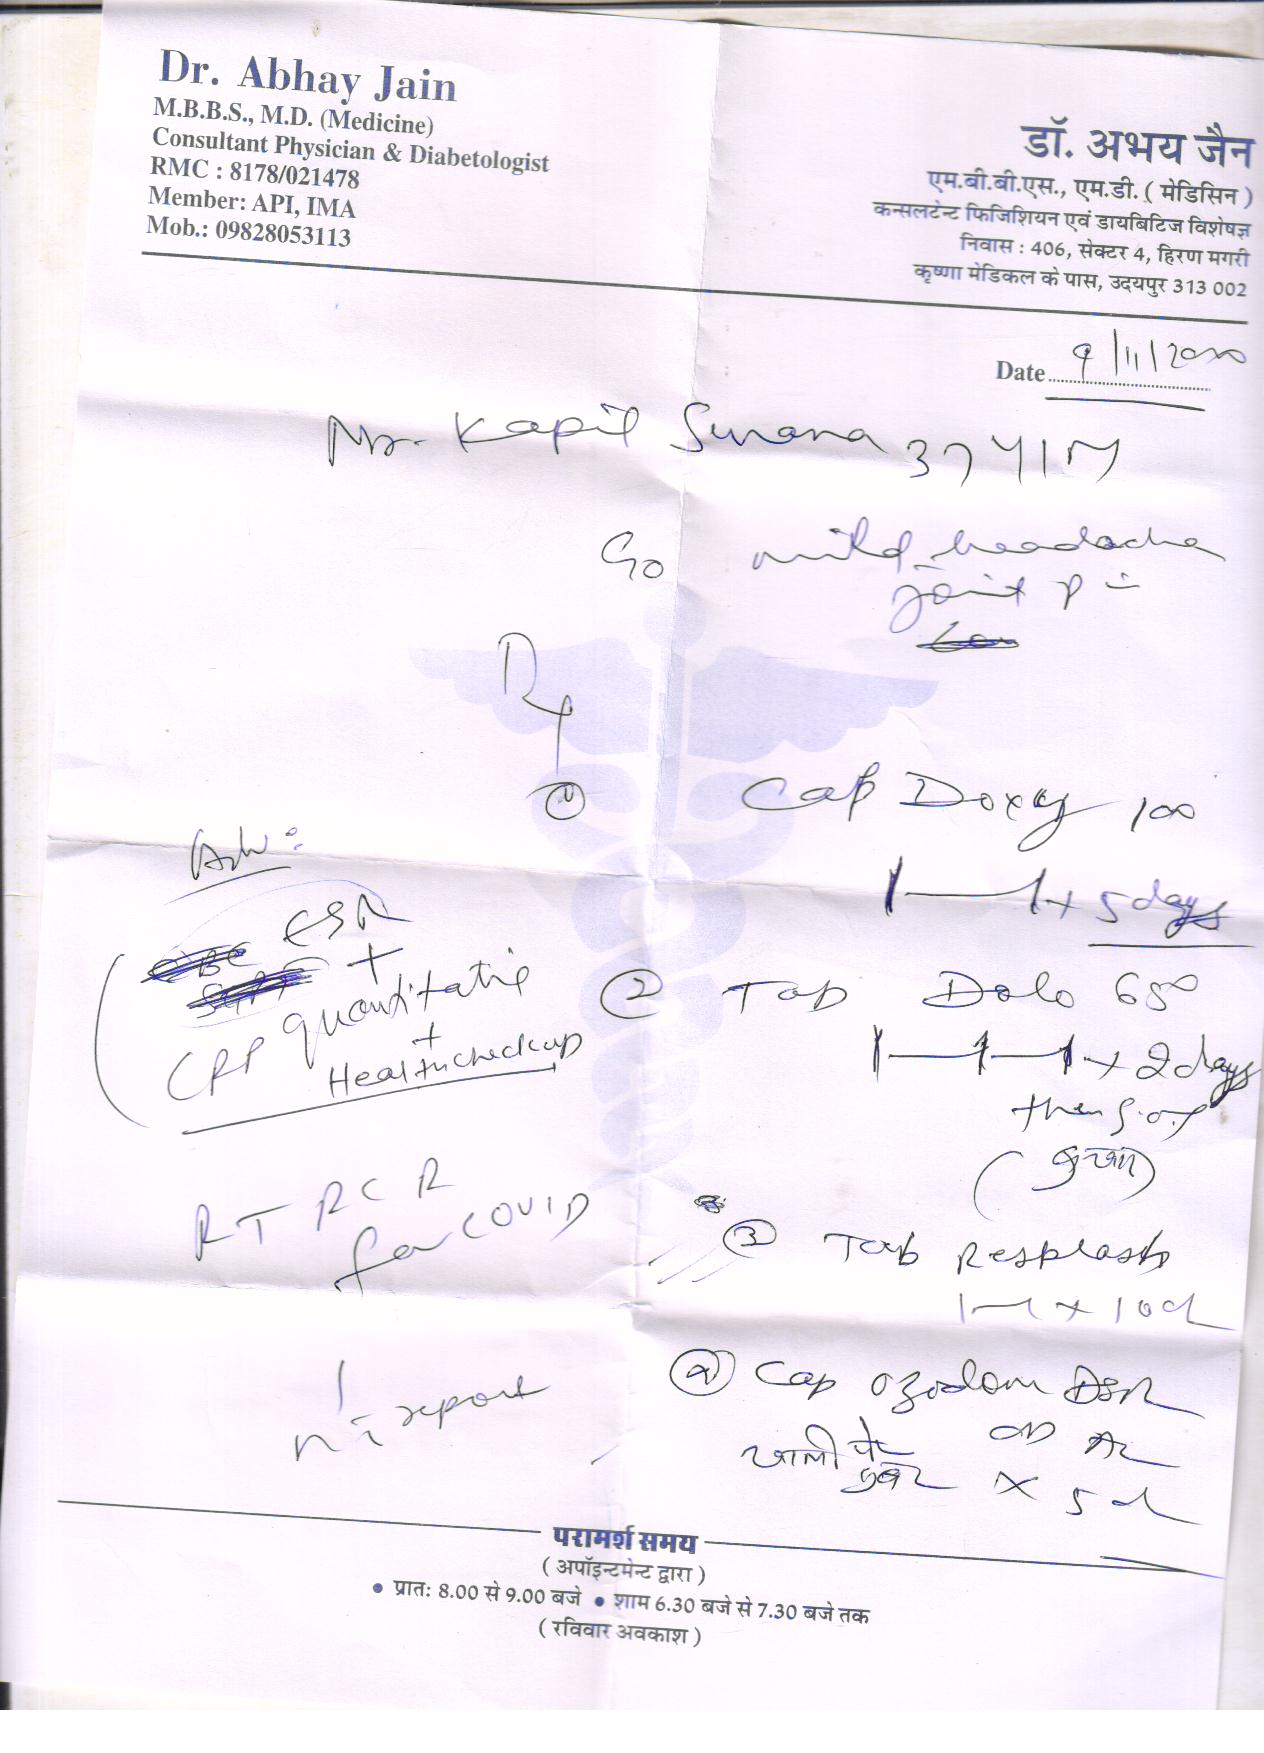 Dr. Abhay Jain
M.B.B.S., M.D. (Medicine)
Consultant Physician & Diabetologist
RMC : 8178/021478
Member: API, IMA
Mob.: 09828053113
डॉ. अभय जैन
एम.बी.बी.एस., एम.डी. ( मेडिसिन )
कन्सलटेन्ट फिजिशियन एवं डायबिटिज विशेषज्ञ
निवास : 406, सेक्टर 4, हिरण मगरी
कृष्णा मेडिकल के पास, उदयपुर 313 002
Date 9/11/2020
Mr. Kapil Surana 37Y/M
C/o mild headache
joint p
Rx
① Cap Doxy 100
1—1 x 5 days
Adv:
ESR
+
CRP quantitative
+
Health checkup
② Tab Dolo 650
1—1—1 x 2 days
then S.O.S
(बुखार)
RT PCR
for COVID
③ Tab Resplash
1—1 x 10d
report
④ Cap Ozodom DSR
OD AC
खाली पेट
x 5d
परामर्श समय
( अपॉइन्टमेन्ट द्वारा )
• प्रातः 8.00 से 9.00 बजे • शाम 6.30 बजे से 7.30 बजे तक
( रविवार अवकाश )